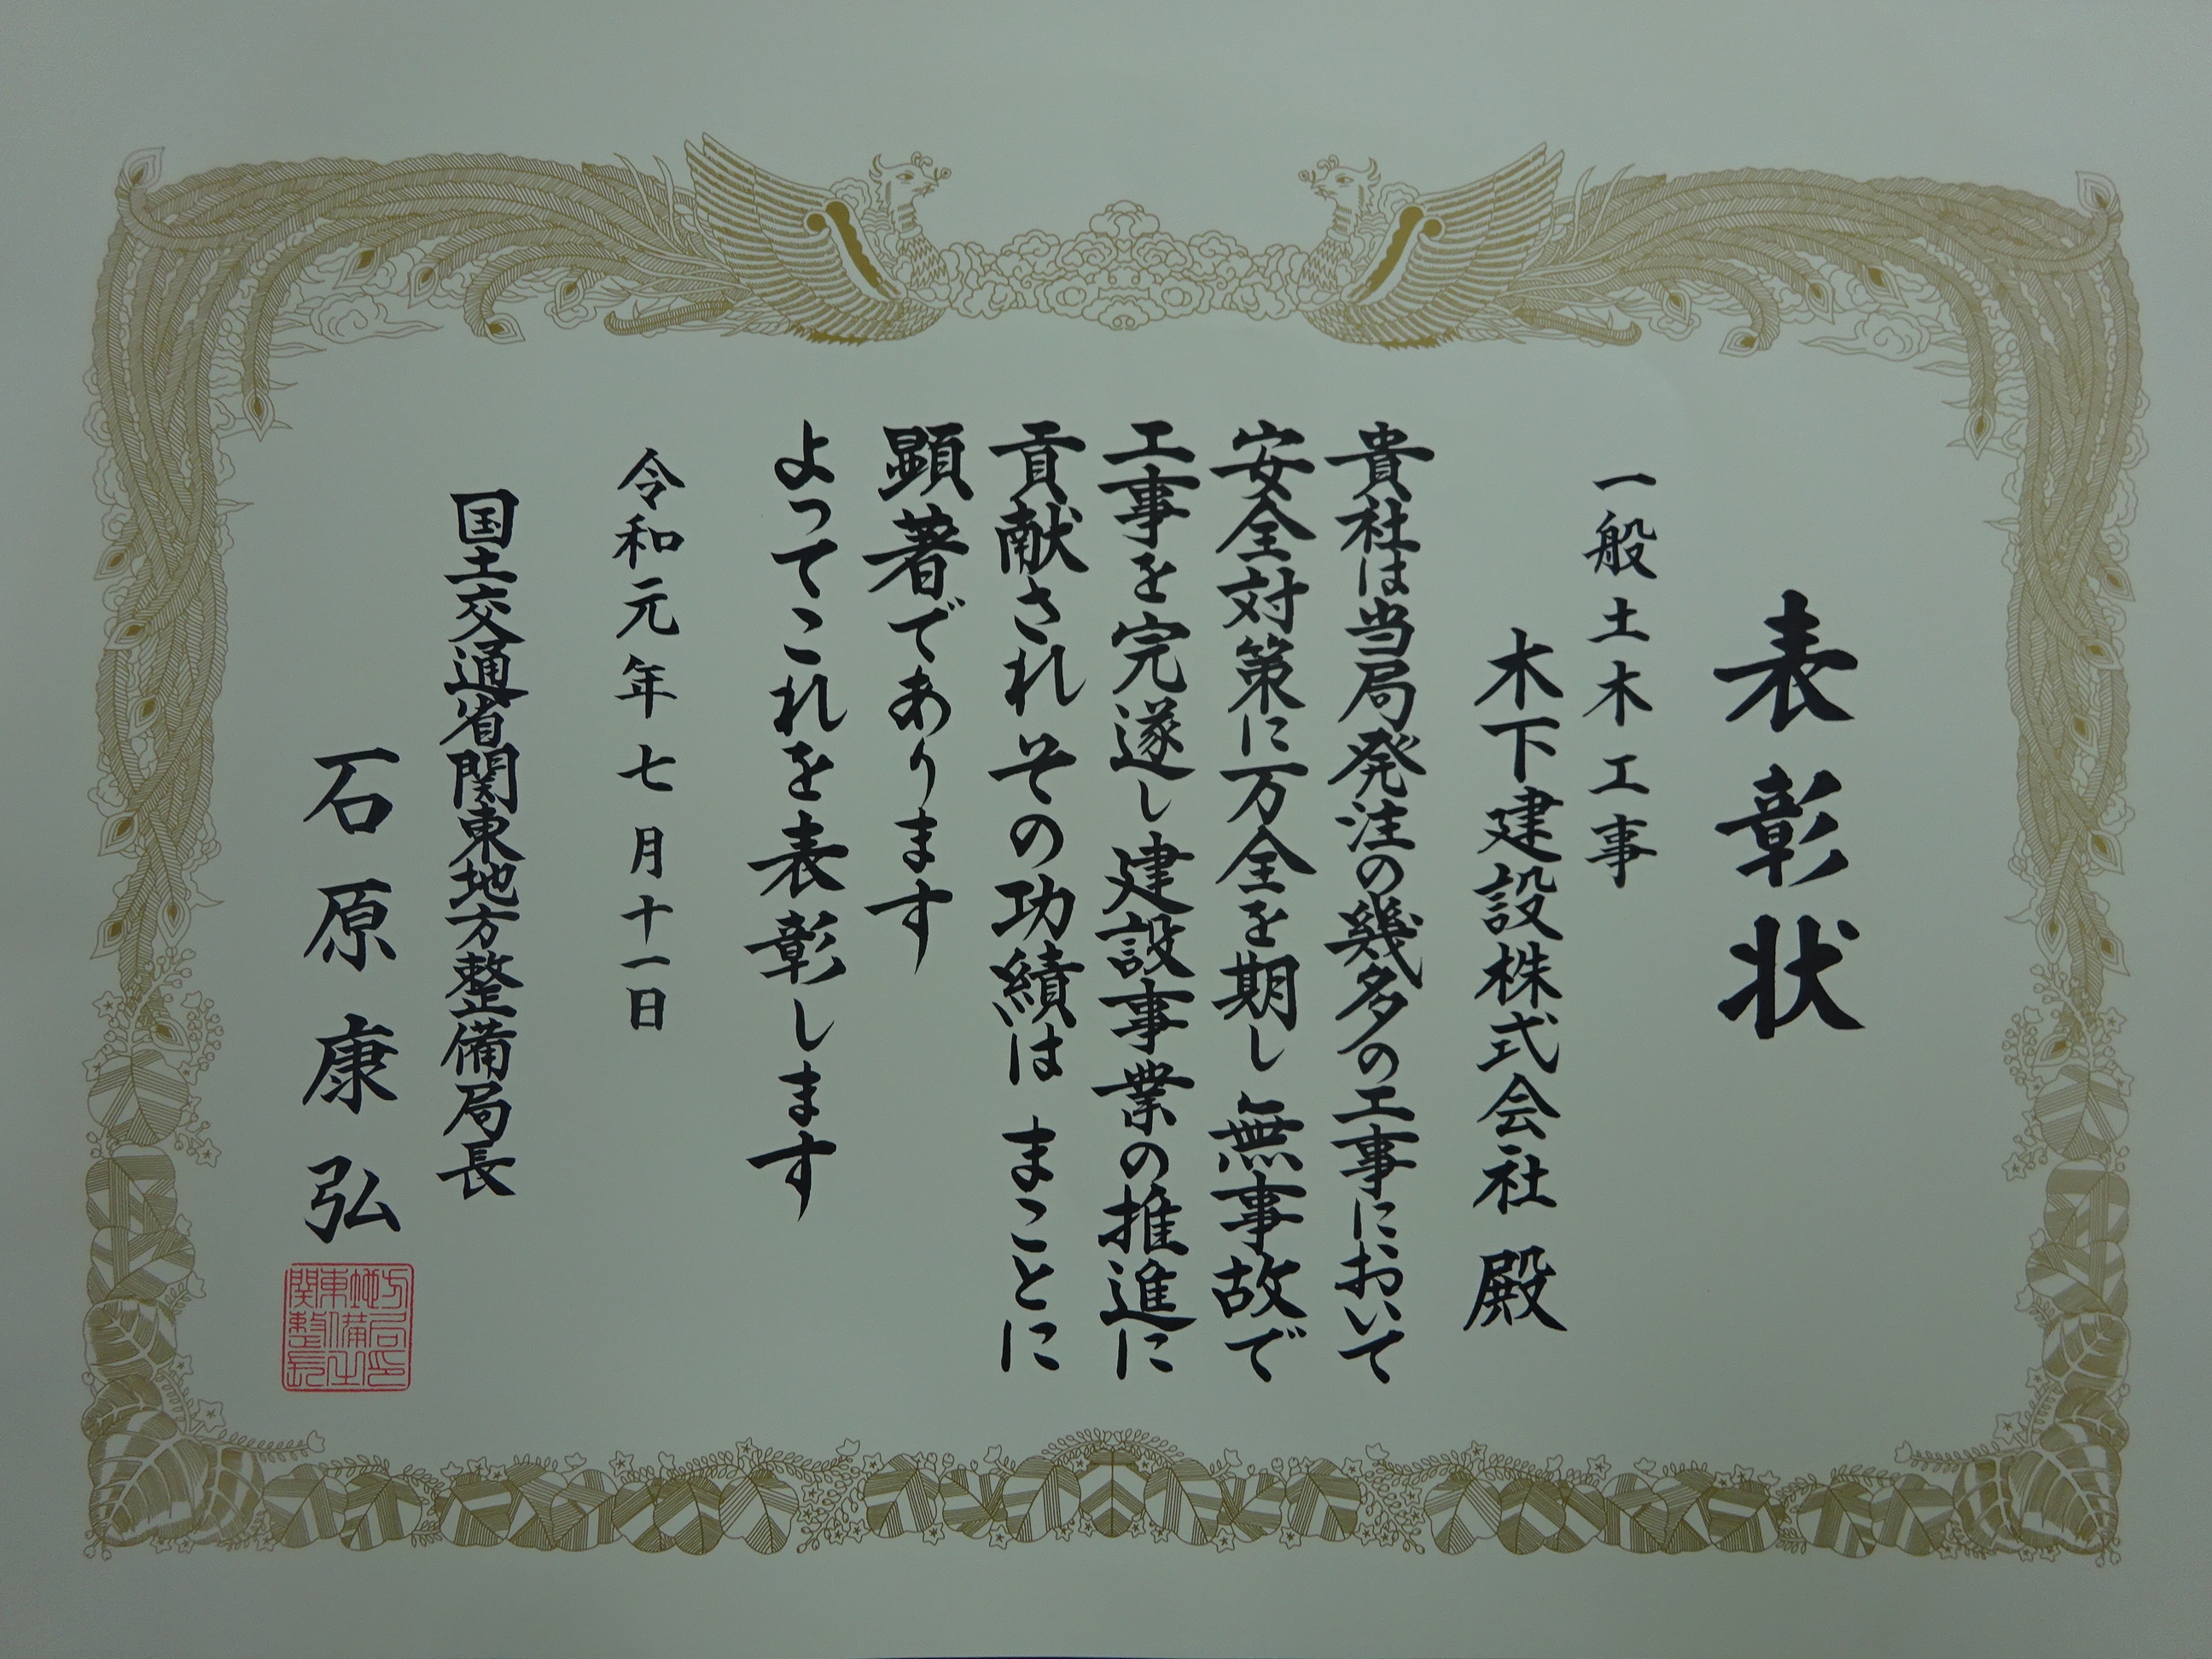 表彰状
一般土木工事
木下建設株式会社 殿
貴社は当局発注の幾多の工事において
安全対策に万全を期し 無事故で
工事を完遂し 建設事業の推進に
貢献され その功績は まことに
顕著であります
よってこれを表彰します
令和元年七月十一日
国土交通省関東地方整備局長
石原康弘
関東地方整備局長之印